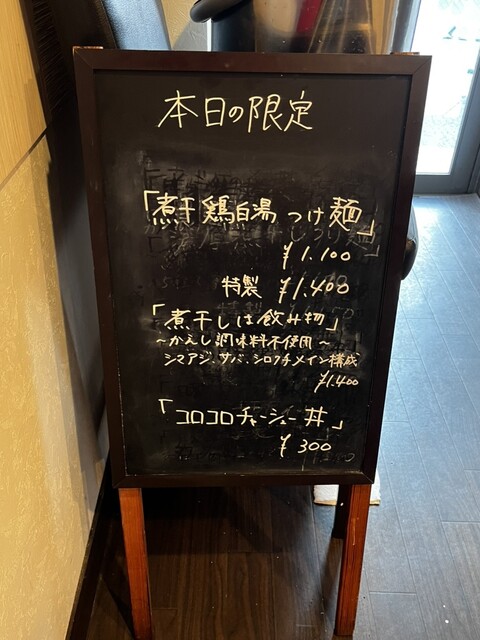 本日の限定
「煮干鶏白湯つけ麺」
¥1.100
特製 ¥1.400
「煮干しは飲み物」
~かえし調味料不使用~
シマアジ、サバ、シロクチメイン構成
¥1.400
「コロコロチャーシュー丼」
¥300